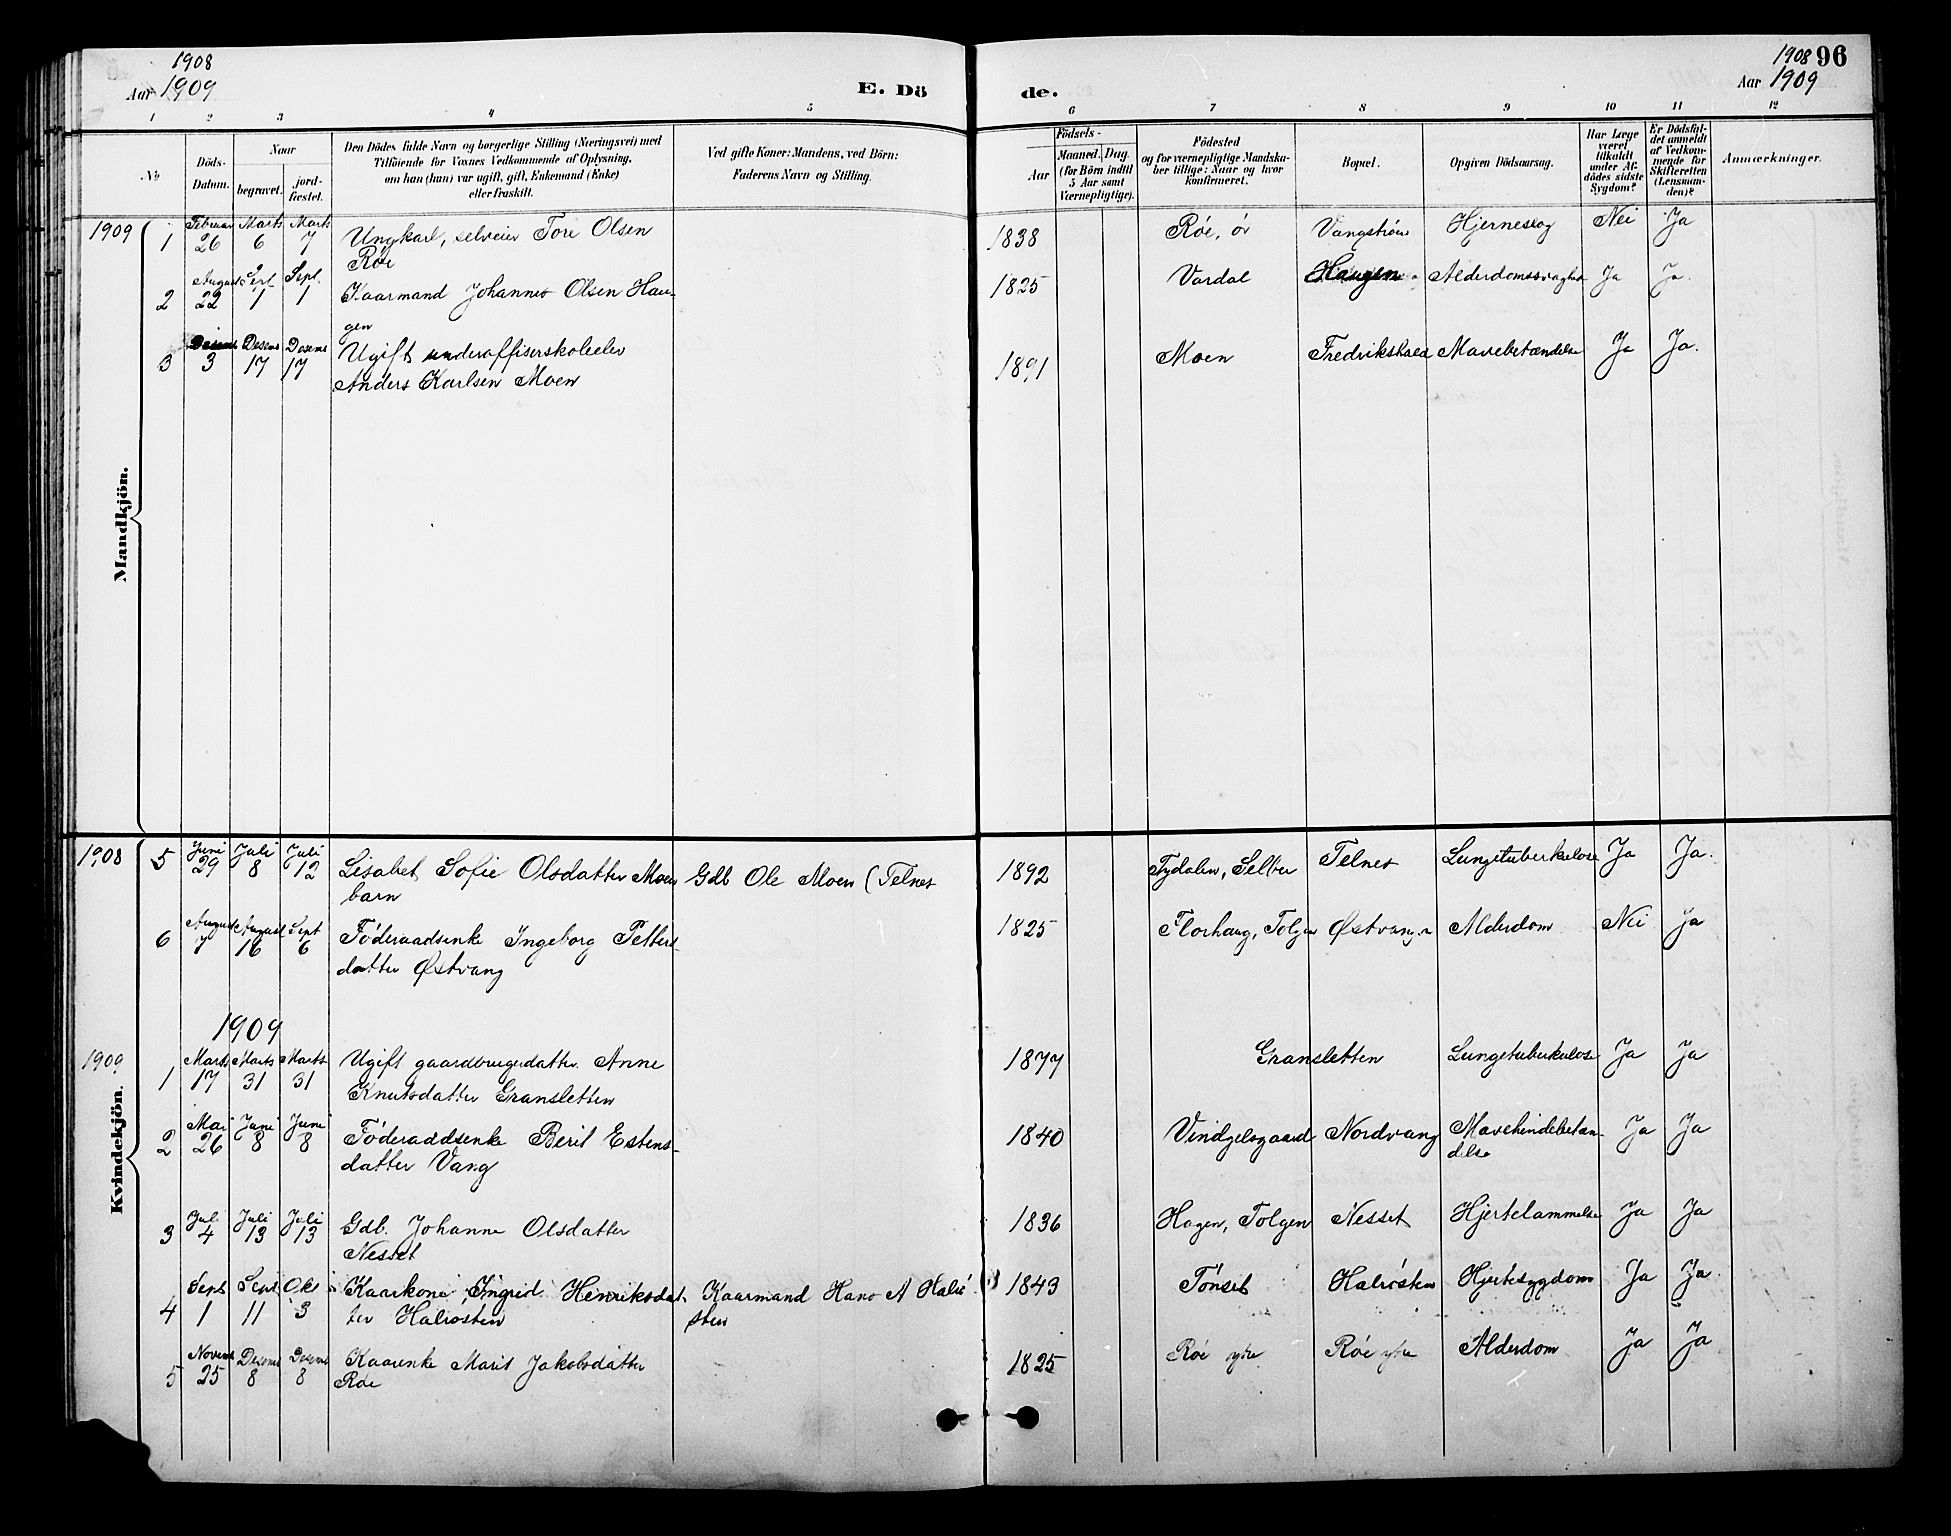 1908
Aar 1909
E. Dö
de.
1908 96
Aar 1909
1 2 3 4 5 6 7 8 9 10 11 12
No
Döds-Datum.
Naar
begravet.
jord-fæstet.
Den Dödes fulde Navn og borgerlige Stilling (Næringsvei) med
Tilföiende for Voxnes Vedkommende af Oplysning,
om han (hun) var ugift, gift, Enkemand (Enke)
eller fraskilt.
Ved gifte Koner: Mandens, ved Börn:
Faderens Navn og Stilling.
Födsels-
Aar
Maaned. Dag.
(for Börn indtil
5 Aar samt
Værnepligtige).
Födested
og for værnepligtige Mandska-
ber tillige: Naar og hvor
konfirmeret.
Bopæl.
Opgiven Dödsaarsag.
Har Læge
været
tilkaldt
under Af-
dödes sidste
Sygdom?
Er Dödsfal-
det anmeldt
af Vedkom-
mende for
Skifteretten
(Lensman-
den)?
Anmærkninger.
Mandkjön.
1909 1 Februar 26 Marts 6 Marts 7 Ungkarl, selveier Tore Olsen 1838 Røe, ør Vangstrøen Hjerneslag Nei Ja
Røe
2 August 22 Sept 1 Sept. 1 Kaarmand Johannes Olsen Hau- 1825 Vardal Haugen Alderdomssvaghed Ja Ja.
gen
3 Desem 3 Desem 17 Desem 17 Ugift underoffiserskoleelev 1891 Moen Fredrikshald Mavebetændelse Ja Ja.
Anders Karlsen Moen
Kvindekjön.
1908 5 Juni 29 Juli 8 Juli 12 Lisabet Sofie Olsdatter Moen Gdb Ole Moen (Telnes 1892 Tydalen, Selbu Telnes Lungetuberkulose Ja Ja.
barn
6 August 7 August 16 Sept 6 Føderaadsenke Ingeborg Petters- 1825 Florhaug, Tolgen Østvang Alderdom Nei Ja
datter Østvang
1909
1909 1 Marts 17 Marts 31 Marts 31 Ugift gaardbrugerdatter Anne 1877 Gransletten Lungetuberkulose Ja Ja
Knutsdatter Gransletten
2 Mai 26 Juni 8 Juni 8 Føderaddsenke Beril Estens- 1840 Vindgelsgaard Nordvang Mavehindebetæn- Ja Ja
datter Vang delse
3 Juli 4 Juli 13 Juli 13 Gdb. Johanne Olsdatter 1836 Hagen, Tolgen Nesset Hjertelammelse Ja Ja
Nesset
4 Sept 1 Sept 11 Okt 3 Kaarkone Ingrid Henriksdat- Kaarmand Hans A Halrø 1843 Tønset Halrøsten Hjertesygdom Ja Ja
ter Halrosten sten
5 Novem 25 Desem 8 Desem 8 Kaarenke Marit Jakobsdatter 1825 Røe ytre Røe ytre Alderdom Ja Ja
Røe